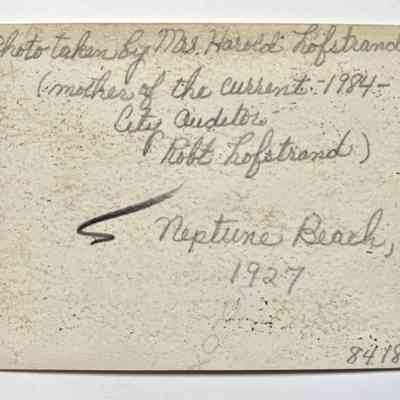 Photo taken by Mrs. Harold Lofstrand
(mother of the current -1984-
City Auditor
Robt. Lofstrand)
Neptune Beach,
1927
8418